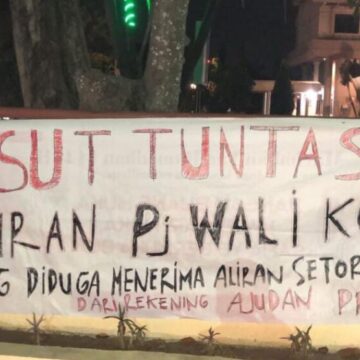 SUT TUNTAS
IRAN Pj WALI KO
G DIDUGA MENERIMA ALIRAN SETOR
DARI REKENING AJUDAN P